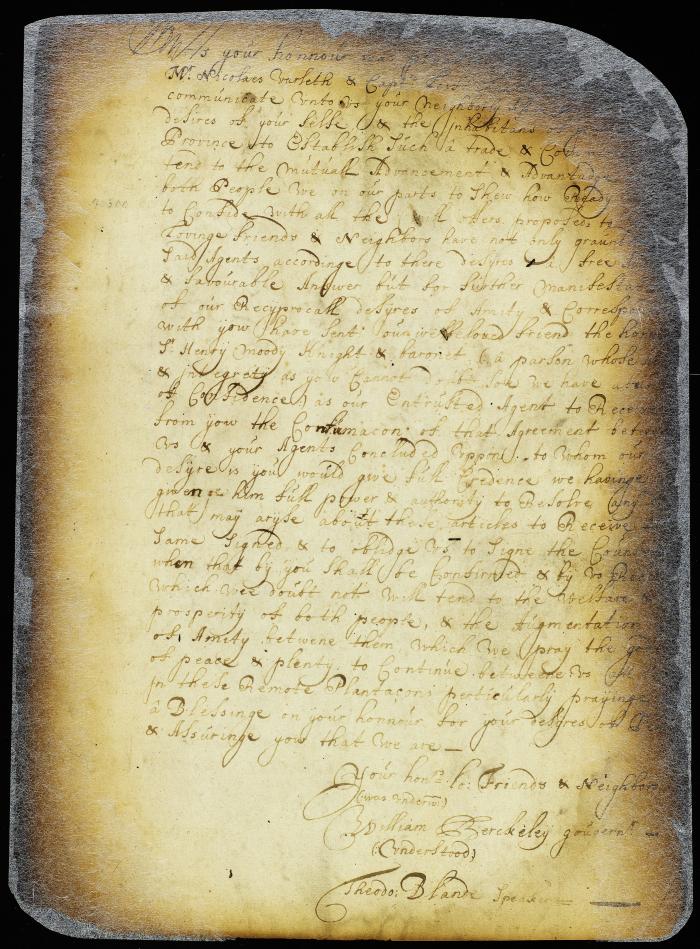 As your honnour
Mr. Nicolaes Varleth & Capt.
communicate vnto vs your Neighborly
desires of your selfe, & the Inhabitans
Province, to Establish Such a trade &
tend to the mutuall Advancement & Advantadge
both People We on our parts to shew how Ready
to Confide with all the will offers proposed to
Lovinge friends & Neighbors have not only graunt
said Agents accordinge to there desyres a free
& favourable Answer but for further manifesta
of our Recyprocall desyres of Amity & Correspo
with yow have sent our welbeloved friend the hon
Sr. Henry Moody Knight & baronet (a parson whose
& integrety as yow Cannot doubt soe we have
of Confidence) as our Entrusted Agent to Receive
from yow the Confirmacon of that Agreement betw
vs & your Agents Concluded Vppon: to whom our
desyre is you would give full Credence we havinge
given him full power & authority to Resolve any
that may aryse about these articles to Receive
same signed & to oblidge vs to Signe the Coun
when that by you shall be Confirmed & by vs
which wee doubt not will tend to the welfare &
prosperity of both people, & the Augmentation
of Amity betwene them, which We pray the
of peace & plenty to Continue betweene vs
in these Remote Plantacons perticularly prayinge
a Blessinge on your honnour for your desyres of
& Assuringe you that we are —
Your honrs. lo: Friends & Neighbors
(was underw:)
William Berckeley gouvernr. —
(Vnderstood)
Theodo: Blande Speaker —